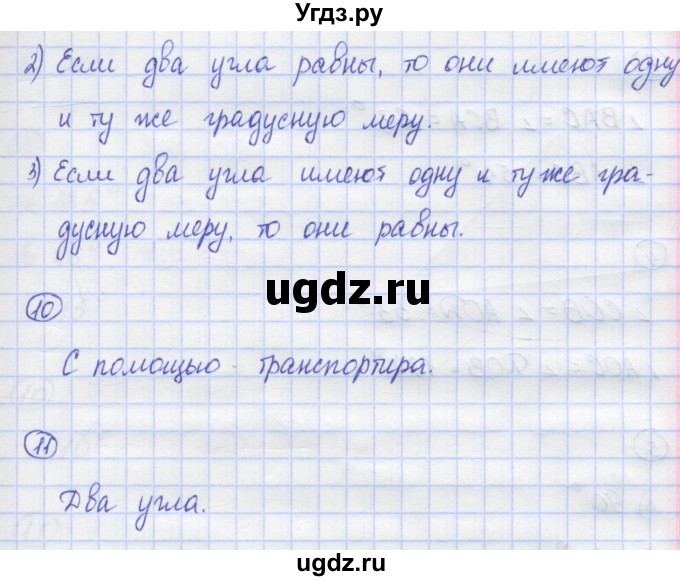 Угдз.ру
2) Если два угла равны, то они имеют одну
и ту же градусную меру.
3) Если два угла имеют одну и ту же гра-
дусную меру, то они равны.
ugdz.ru
10
С помощью транспортира.
11
Два угла.
ugdz.ru